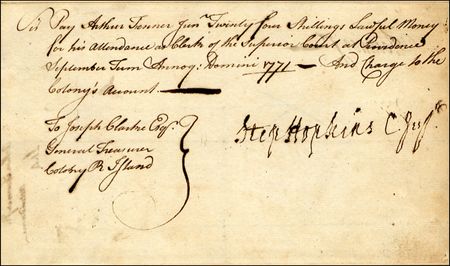 Sir Pay Arthur Fenner Junr. Twenty four Shillings Lawful Money
for his Attendance as Clerk of the Superior Court at Providence
September Term Annoq: Domini 1771 — And Charge to the
Colony's Account. —
To Joseph Clarke Esqr.
General Treasurer
Colony R Island
Step Hopkins C Just